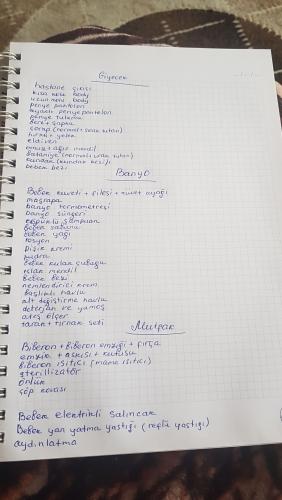 Giyecek
hastane çıkışı
kısa kollu body
uzun kollu body
penye pantolon
ayaklı penye pantolon
penye tulum
bere + şapka
çorap (normal + sıcak tutan)
hırka + yelek
eldiven
omuz + ağız mendil
battaniye (normal + sıcak tutan)
kundak (kundak bezi)
bebek bezi
Banyo
Bebek küveti + filesi + küvet ayağı
maşrapa
banyo termometresi
banyo süngeri
köpüklü şampuan
bebek sabunu
bebek yağı
losyon
pişik kremi
pudra
Bebek kulak çubuğu
ıslak mendil
Bebek bezi
nemlendirici krem
başlıklı havlu
alt değiştirme havlu
deterjan ve yumoş
ateş ölçer
tarak + tırnak seti
Mutfak
Biberon + biberon emziği + fırça
emzik + askısı + kutusu
biberon ısıtıcı (mama ısıtıcı)
sterilizatör
önlük
çöp kovası
Bebek elektrikli salıncak
Bebek yan yatma yastığı (reflü yastığı)
aydınlatma